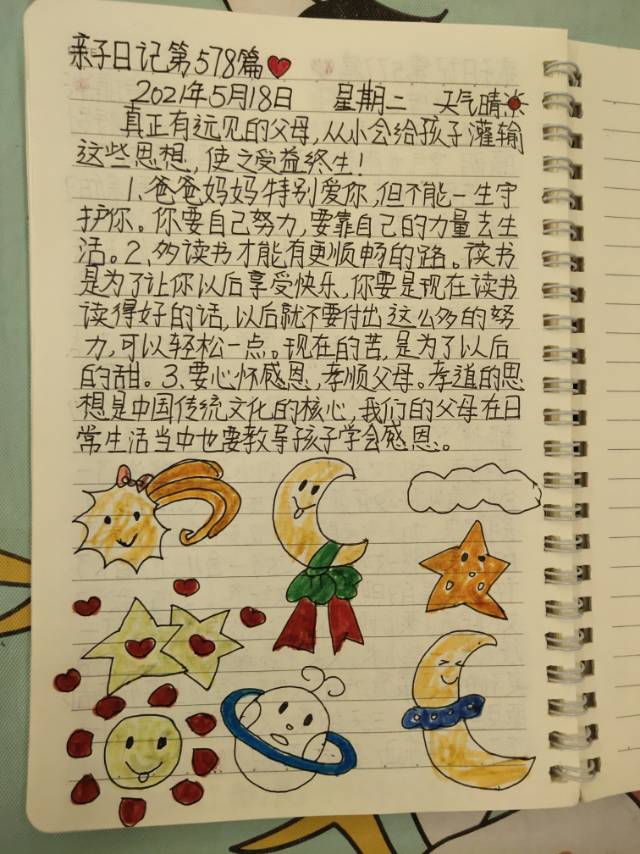 亲子日记第578篇
2021年5月18日 星期二 天气晴
真正有远见的父母,从小会给孩子灌输
这些思想,使之受益终生!
1、爸爸妈妈特别爱你,但不能一生守
护你。你要自己努力,要靠自己的力量去生
活。2、多读书才能有更顺畅的路。读书
是为了让你以后享受快乐,你要是现在读书
读得好的话,以后就不要付出这么多的努
力,可以轻松一点。现在的苦,是为了以后
的甜。3、要心怀感恩,孝顺父母。孝道的思
想是中国传统文化的核心,我们的父母在日
常生活当中也要教导孩子学会感恩。